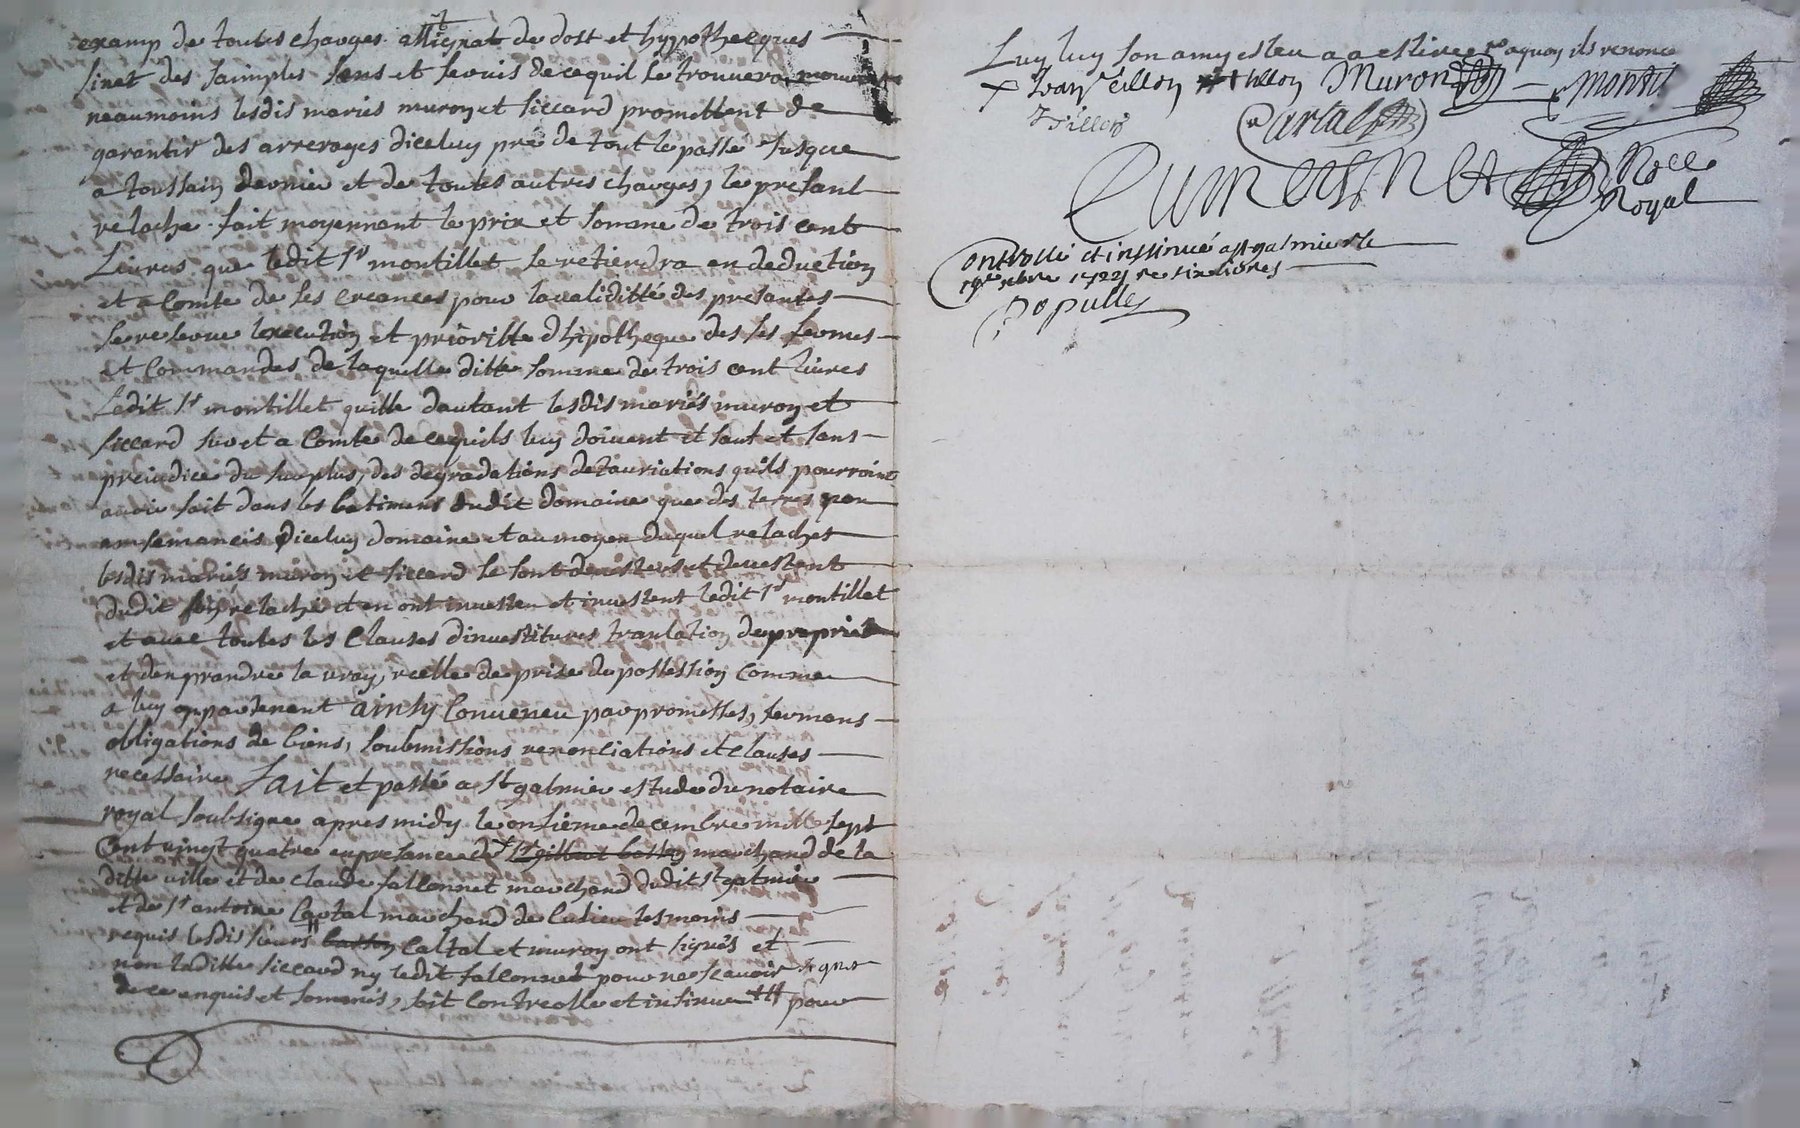 exampt de toutes charges assignat de dost et hyppothecques
sinet des saimples sens et servis de ce quil se trouvera mouvent
neaumoins lesdis maries muron et siccard promettent de
garantir des arrerages diceluy pré de tout le passé jusque
a toussain dernier et de toutes autres charges, le presant
relache fait moyennent le prix et somme de trois cent
Livres que ledit sr montillet se retiendra en deduction
et a Comte de ses creances pour la validitté des presantes
se reserve lexecution et prioritté dhipotheque des ses fermes
et Commandes de laquelle ditte somme de trois cent livres
Ledit sr montillet quille dautant lesdis mariés muron et
siccard sur et a Comte de cequils luy doivent et sauf et sans
preiudice du surplus, des degradations detauriations quils pourroint
avoir fait dans les batimens dudit domaine que des terres non
ensemancés diceluy domaine et au moyen duquel relaches
lesdis mariés muron et siccard se sont devestens et devestent
dudit relaché et en ont investu et investent ledit sr montillet
et avec toutes les Clauses dinvestitures translation de proprieté
et den prandre la vray, reelle de prise de possession Comme
a luy appartenent ainsy Conveneu par promesses, sermens
obligations de biens, soubmissions renonciations et clauses
necessaire fait et passé a st galmier estude du notaire
royal soubsigne apres midy le onsieme decembre mille sept
Cent vingt quatre en presance marchand de la
ditte ville et de claude falconnet marchand dudit st galmier
et de sr antoine Cartal marchand de Cusieu tesmoins
requis lesdis sieurs Cartal et muron ont signés et
non laditte siccard ny ledit falconnet pour ne scavoir signer
de ce enquis et sommés, soit Controllé et insinué pour
Luy son aquoy ils renonce
Muron
Cartal
Notre
Royal
Controllé et insinué a st galmier le
Xbre 1724 re six livres
Populle